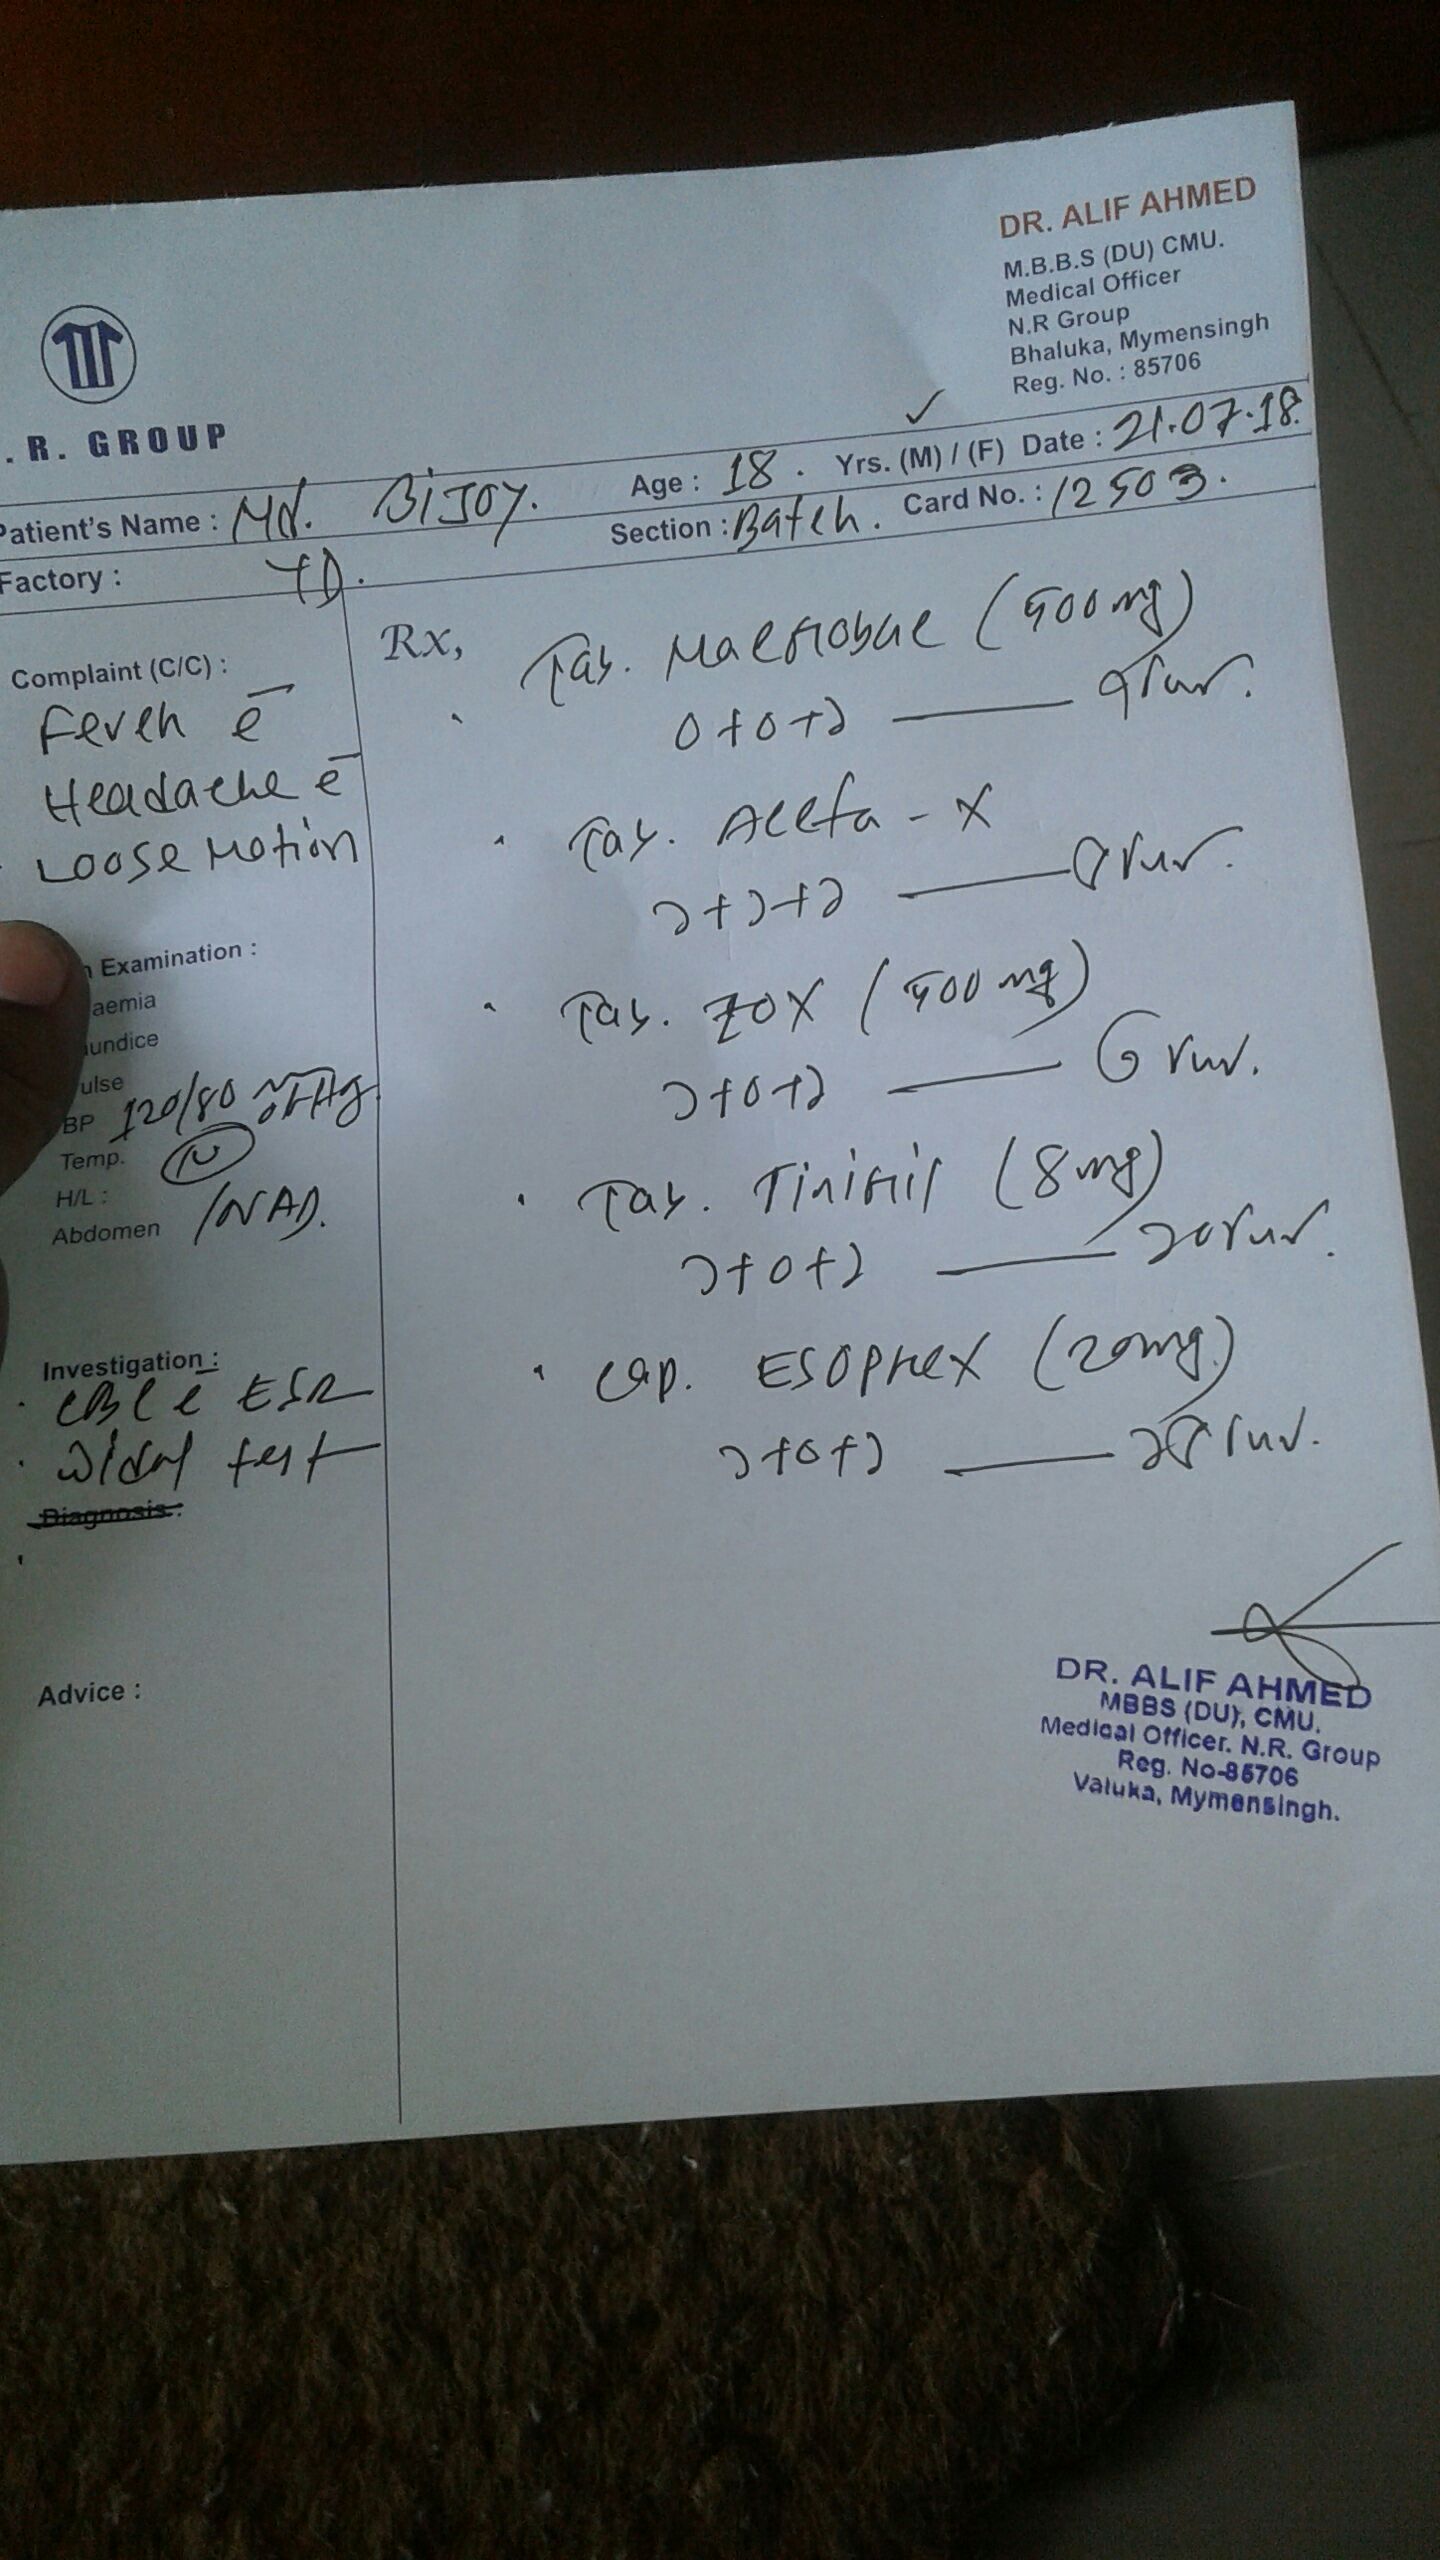 DR. ALIF AHMED
M.B.B.S (DU) CMU.
Medical Officer
N.R Group
Bhaluka, Mymensingh
Reg. No. : 85706
. R. GROUP
Patient's Name : Mr. BiJoy. Age : 18. Yrs. (M) / (F) Date : 21.07.18.
Factory : YD. Section : Batch. Card No. : 12503.
Complaint (C/C) :
Fever c̄
Headache c̄
Loose Motion
n Examination :
aemia
undice
ulse
BP 120/80 mmHg
Temp. N
H/L :
Abdomen /NAD.
Investigation :
CBC c̄ ESR
Widal test
Diagnosis :
Advice :
Rx,
Tab. Macrobac (500 mg)
0+0+১
Tab. Acefa-X
১+১+১
Tab. ZOX (500 mg)
১+0+১
Tab. (8 mg)
১+0+১
Cap. ESOPREX (20mg)
১+0+১
DR. ALIF AHMED
MBBS (DU), CMU.
Medical Officer. N.R. Group
Reg. No-85706
Valuka, Mymensingh.